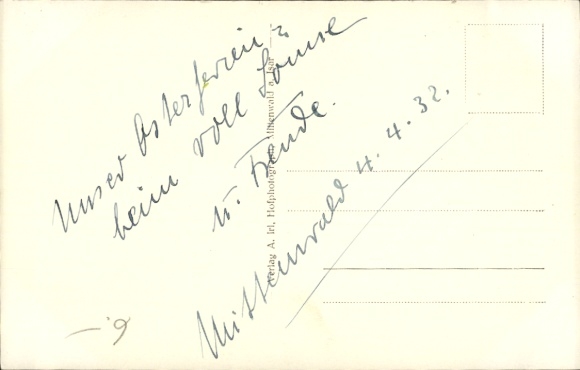 Unser Osterferien
heim voll Sonne
u. Freude.
Mittenwald 4.4.32.
Verlag A. Irl, Hofphotograph, Mittenwald a. Isar